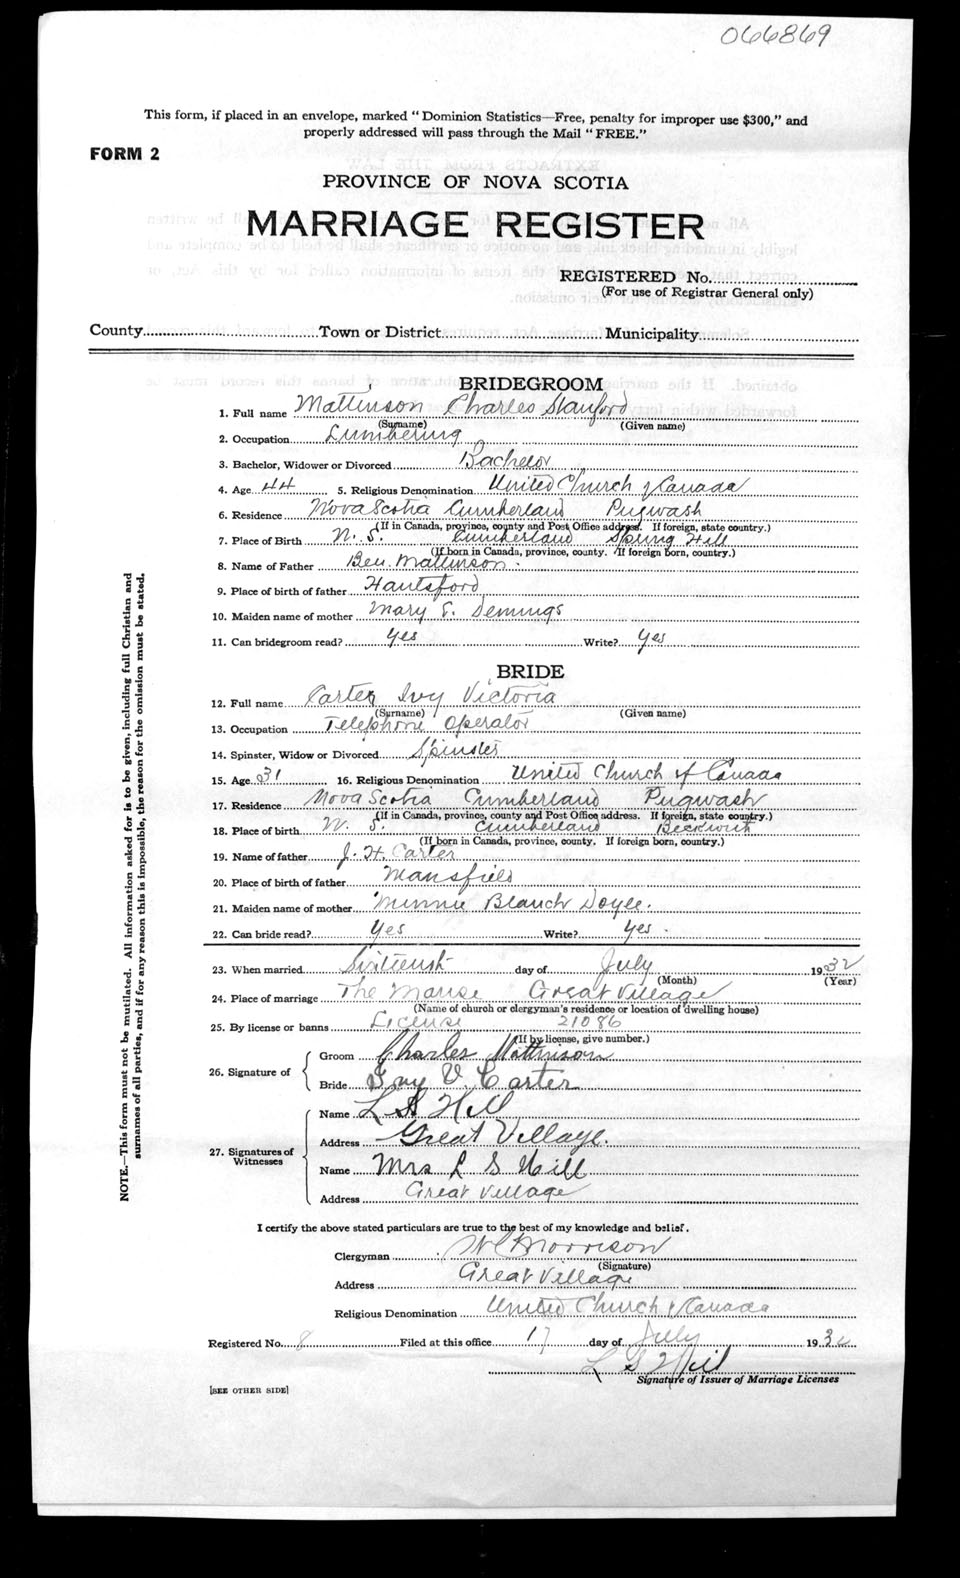 066869
This form, if placed in an envelope, marked "Dominion Statistics—Free, penalty for improper use $300," and
properly addressed will pass through the Mail "FREE."
FORM 2
PROVINCE OF NOVA SCOTIA
MARRIAGE REGISTER
REGISTERED No.
(For use of Registrar General only)
County Town or District Municipality
BRIDEGROOM
1. Full name Mattinson Charles Stanford
(Surname) (Given name)
2. Occupation Lumbering
3. Bachelor, Widower or Divorced Bachelor
4. Age 44 5. Religious Denomination United Church of Canada
6. Residence Nova Scotia Cumberland Pugwash
(If in Canada, province, county and Post Office address. If foreign, state country.)
7. Place of Birth N. S. Cumberland Spring Hill
(If born in Canada, province, county. If foreign born, country.)
8. Name of Father Ben. Mattinson
9. Place of birth of father Hantsford
10. Maiden name of mother Mary E. Demings
11. Can bridegroom read? Yes Write? Yes
BRIDE
12. Full name Carter Ivy Victoria
(Surname) (Given name)
13. Occupation Telephone Operator
14. Spinster, Widow or Divorced Spinster
15. Age 31 16. Religious Denomination United Church of Canada
17. Residence Nova Scotia Cumberland Pugwash
(If in Canada, province, county and Post Office address. If foreign, state country.)
18. Place of birth N. S. Cumberland Beckwith
(If born in Canada, province, county. If foreign born, country.)
19. Name of father J. H. Carter
20. Place of birth of father Mansfield
21. Maiden name of mother Minnie Blanch Doyle.
22. Can bride read? Yes Write? Yes.
23. When married day of July 1932
(Month) (Year)
24. Place of marriage The Manse Great Village
(Name of church or clergyman's residence or location of dwelling house)
25. By license or banns License 21086
(If by license, give number.)
26. Signature of
Groom Charles Mattinson
Bride Ivy V. Carter
27. Signatures of Witnesses
Name L S Hill
Address Great Village.
Name Mrs L S Hill
Address Great Village
I certify the above stated particulars are true to the best of my knowledge and belief.
Clergyman Morrison
(Signature)
Address Great Village
Religious Denomination United Church of Canada
Registered No. 8 Filed at this office 17 day of July 1932
L S Hill
Signature of Issuer of Marriage Licenses
[SEE OTHER SIDE]
NOTE.—This form must not be mutilated. All information asked for is to be given, including full Christian and
surnames of all parties, and if for any reason this is impossible, the reason for the omission must be stated.